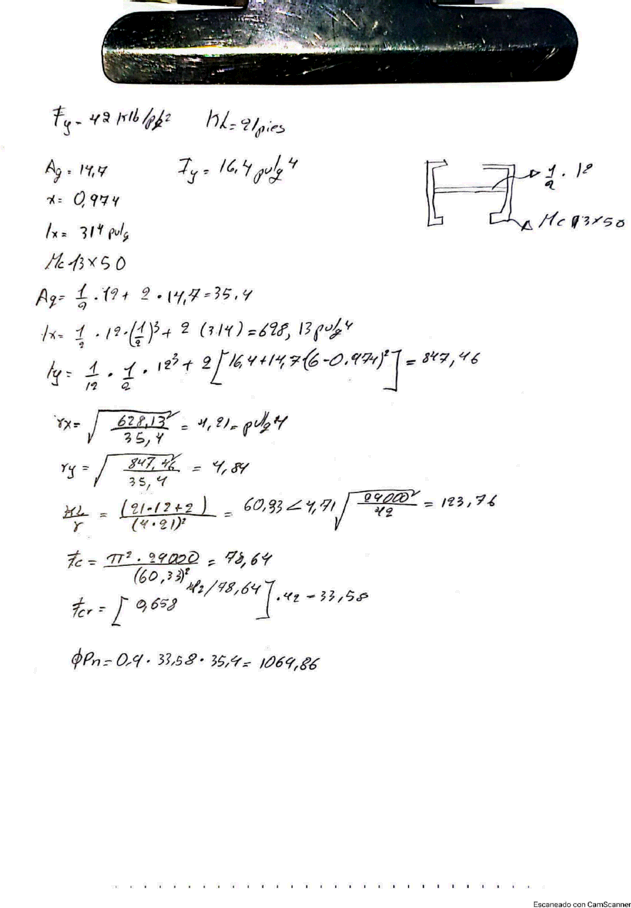 Fy = 42 klb/plg² KL = 21 pies
Ag = 14,7 Iy = 16,4 pulg⁴
x = 0,974
Ix = 314 pulg
Mc 13x50
1/2 · 12
Mc 13x50
Ag = 1/2 · 12 + 2 · 14,7 = 35,4
Ix = 1/2 · 12 · (1/2)³ + 2 (314) = 628,13 pulg⁴
Iy = 1/12 · 1/2 · 12³ + 2 [16,4 + 14,7 (6 - 0.974)²] = 847,46
rx = √(628,13/35,4) = 4,21 = pulg4
ry = √(847,46/35,4) = 4,84
KL/r = (21·12+2)/(4·21)² = 60,33 < 4,71 √(29000/42) = 123,76
Fc = π² · 29000/(60,33)² = 78,64
Fcr = [0,658^42/78,64] · 42 = 33,58
ϕPn = 0,9 · 33,58 · 35,4 = 1069,86
Escaneado con CamScanner